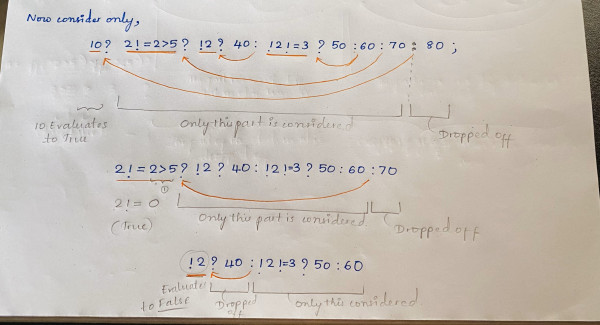 Now consider only,
10? 2!=2>5? !2? 40: !2!=3? 50:60: 70: 80;
10 Evaluates to True
Only this part is considered
Dropped off
2!=2>5? !2? 40: !2!=3? 50:60:70
①
2!=0
(True)
Only this part is considered
Dropped off
!2? 40:!2!=3?50:60
Evaluates to False
Dropped off
only this considered